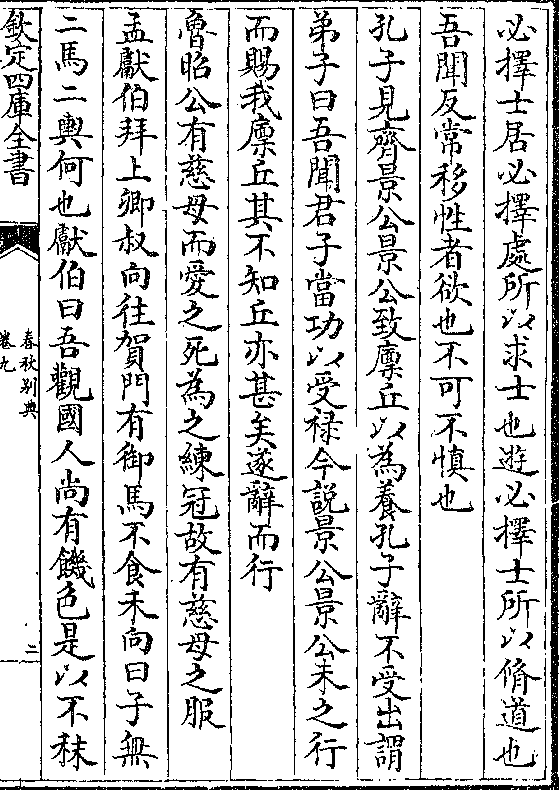 必擇士居必擇處所以求士也遊必擇士所以脩道也
吾聞反常移性者欲也不可不慎也
孔子見齊景公景公致廩丘以為養孔子辭不受出謂
弟子曰吾聞君子當功以受禄今說景公景公未之行
而賜我廩丘其不知丘亦甚矣遂辭而行
魯昭公有慈母而愛之死為之練冠故有慈母之服
孟獻伯拜上卿叔向往賀門有御馬不食禾向曰子無
二馬二輿何也獻伯曰吾觀國人尚有饑色是以不秣
欽定四庫全書
春秋别典
卷九
二